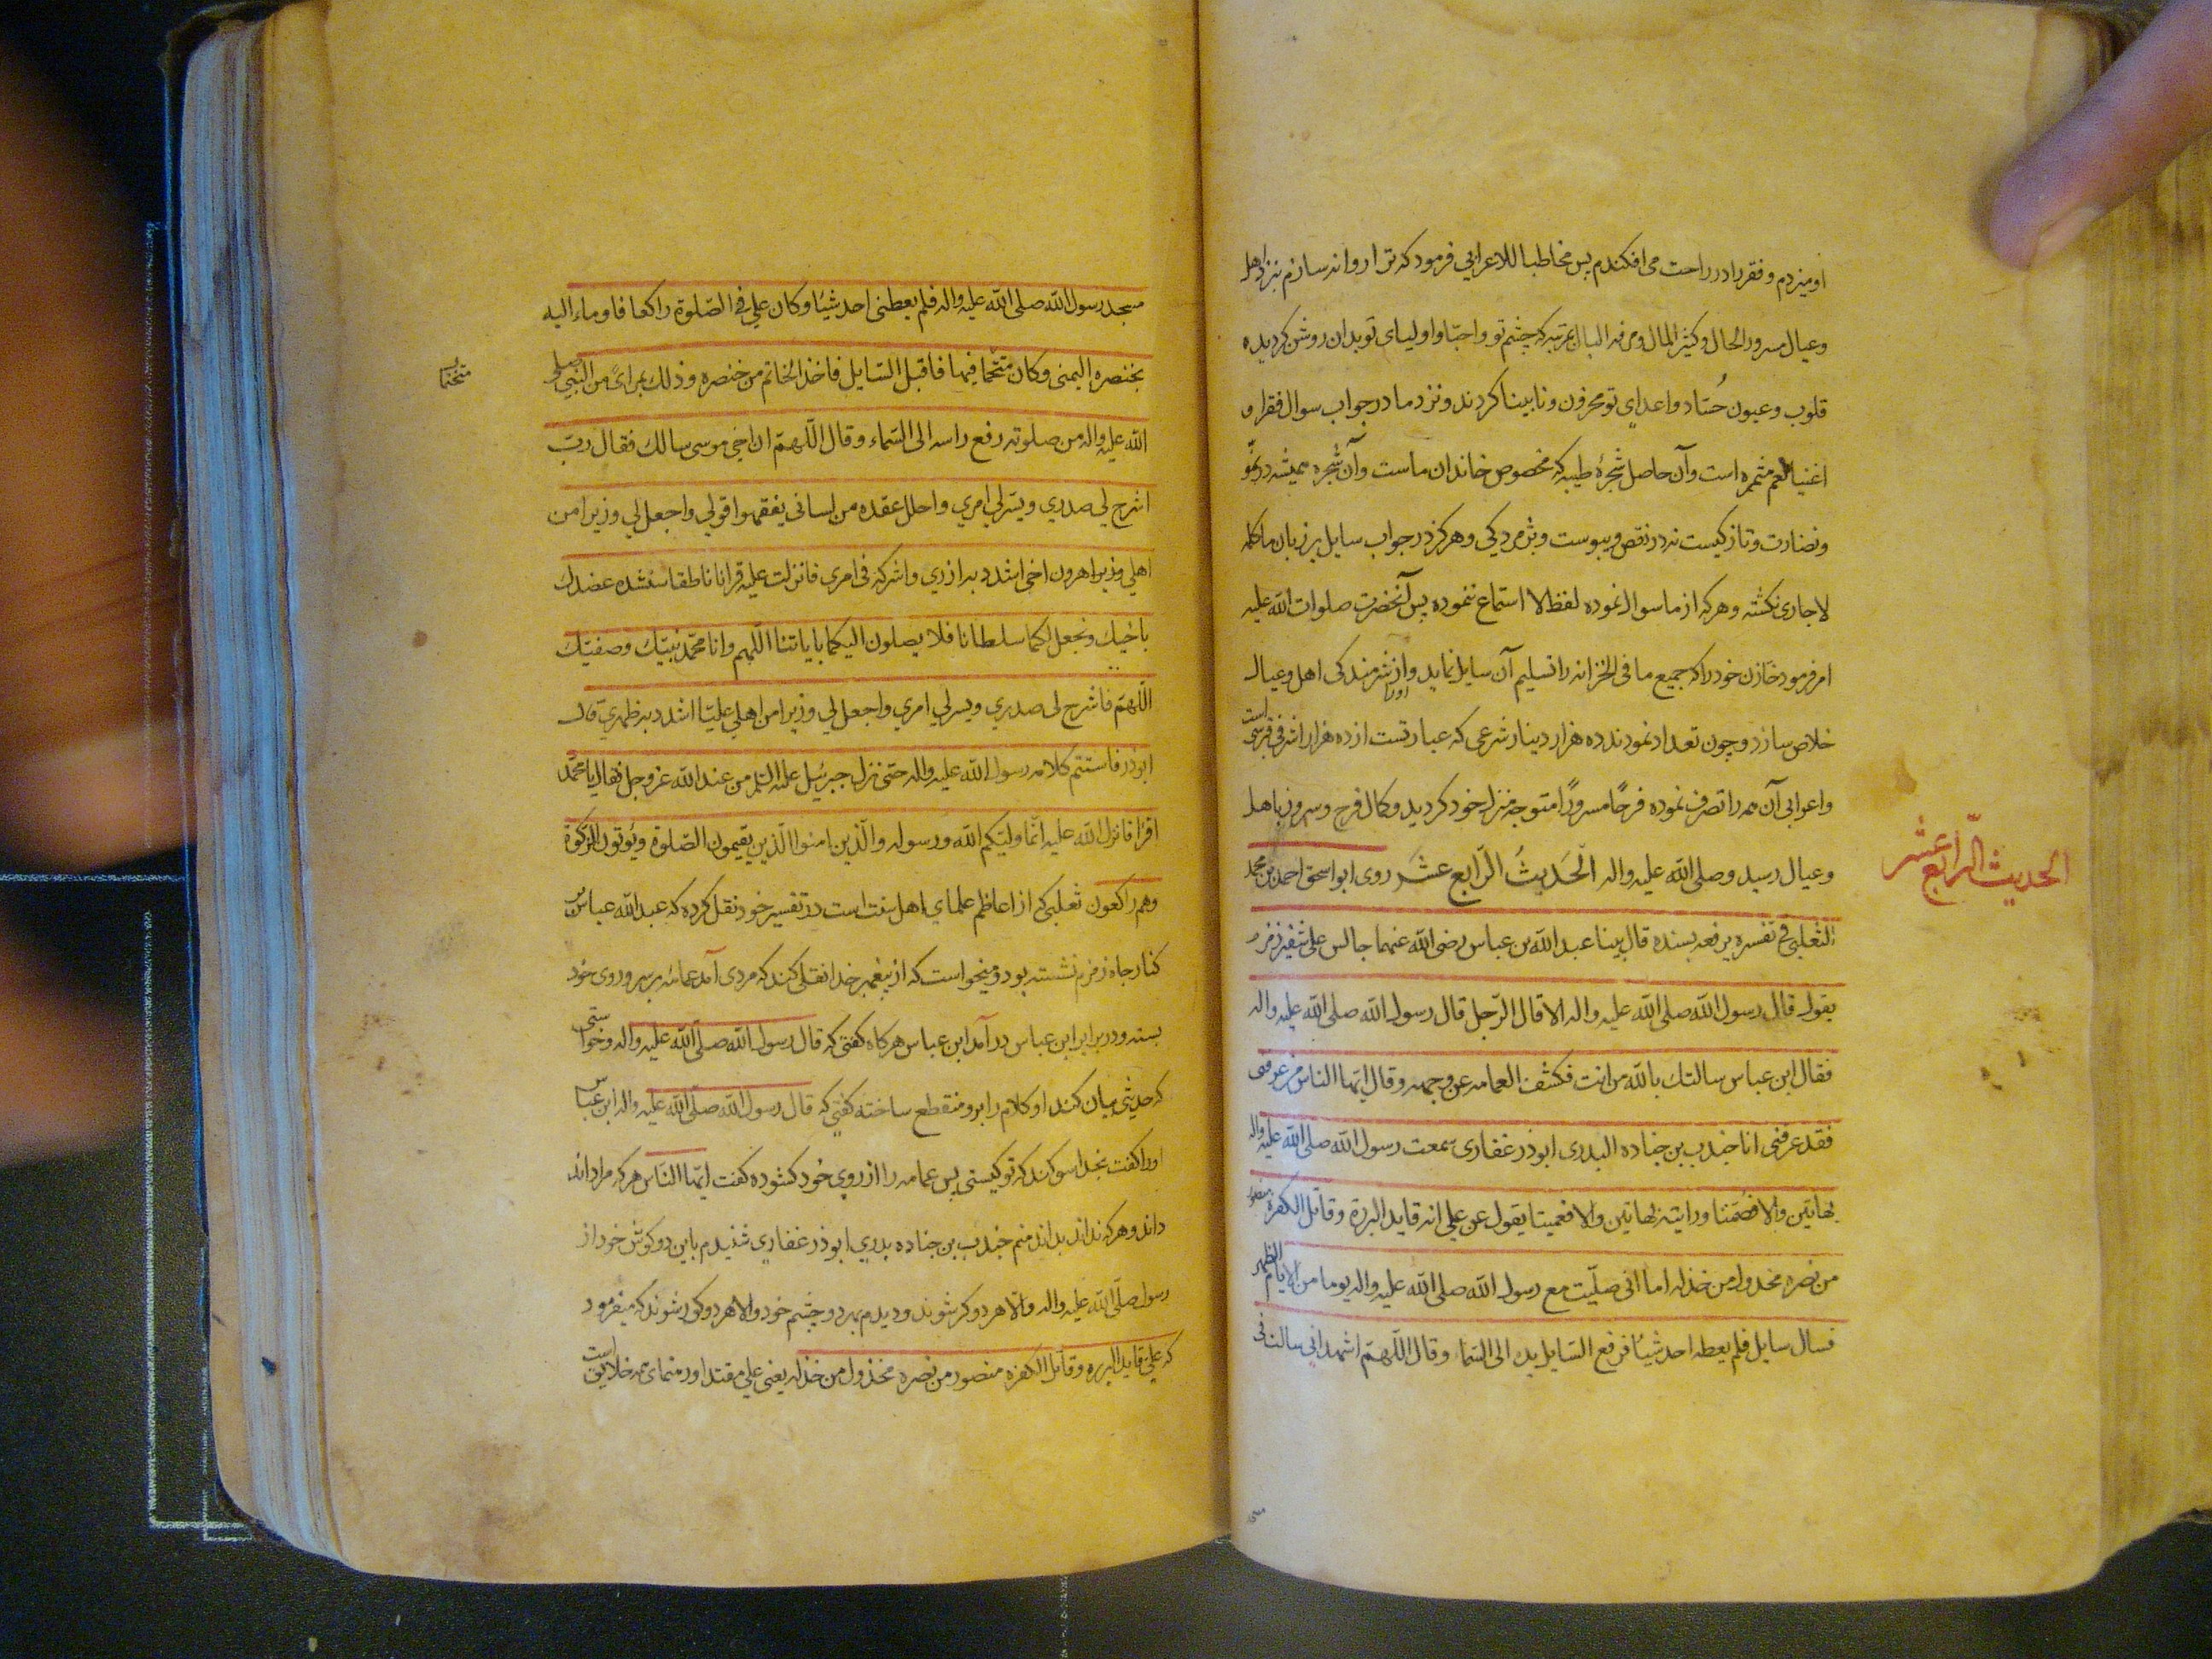 او میزدم و فقر را در راحت می افکندم پس مخاطبا للاعرابی فرمود که ترا روانه سازم بنزد اهل
وعیال مسرور الحال و کثیر المال و مرفه البال بمرتبه که چشم تو و احبا و اولیای تو بدان روشن کردیده
قلوب و عیون حُسّاد و اعدای تو محزون و نابینا کردند و نزد ما در جواب سوال فقرا و
اغنیا نعم مثمره است وآن حاصل شجرۀ طیبه که مخصوص خاندان ماست وآن شجره همیشه در نموّ
و نضارت و تازکیست نه در نقص و یبوست و پژمردکی و هرکز در جواب سایل بر زبان ما کلمه
لا جاری نکشته و هرکه از ما سوال نموده لفظ لا استماع ننموده پس آنحضرت صلوات الله علیه
امر فرمود خازن خود را که جمیع ما فی الخزانه را تسلیم آن سایل نماید و او را از شرمندکی اهل و عیال
خلاص سازد و چون تعداد نمودند ده هزار دینار شرعی که عبارتست از ده هزار اشرفی است
واعرابی آن همه را تصرف نموده فرحًا مسرورًا متوجه منزل خود کردید و کمال فرح و سرور باهل
وعیال رسید وصلی الله علیه واله الحَدیثُ الرّابع عشَر روی ابو اسحق احمد بن محمد
الحدیث الرّابع عشر
الثعلبی فی تفسیره یرفعه بسنده قال بینا عبد الله بن عباس رضی الله عنهما جالس علی شفیر زمزم
یقول قال رسول الله صلی الله علیه واله الا قال الرّجل قال رسول الله صلی الله علیه واله
فقال ابن عباس سالتك بالله من انت فکشف العمامه عن وجهه وقال ایّها الناس من عرفنی
فقد عرفنی انا جندب بن جناده البدری ابوذر غفاری سمعت رسول الله صلی الله علیه واله
بهاتین والا فصُمّتا ورایته بهاتین والا فعمیتا یقول عن علی انه قاید البررة وقاتل الکفرة منصور
من نصره مخذول من خذله اما انی صلّیت مع رسول الله صلی الله علیه واله یوما من الایام الظهر
فسال سایل فلم یعطه احد شیئًا فرفع السّایل یده الی السّماء وقال اللّهمّ اشهد انی سالت فی
مسجد رسول الله صلی الله علیه واله فلم یعطنی احد شیئًا وکان علی فی الصّلوة راکعا فاوماء الیه
بخنصره الیمنی وکان متختّما فیها فاقبل السّایل فاخذ الخاتم من خنصره وذلك بمرایً من النّبی صلی
متختما
الله علیه واله من صلوته رفع راسه الی السّماء وقال اللّهمّ ان اخی موسی سالك فقال ربّ
اشرح لی صدری ویسّر لی امری واحلل عقده من لسانی یفقهوا قولی واجعل لی وزیرا من
اهلی وزیرا هرون اخی اشدد به ازری واشرکه فی امری فانزلت علیه قرانا ناطقا سنشده عضدك
باخیك ونجعل لکما سلطانا فلا یصلون الیکما بایاتنا اللّهم وانا محمّد نبیّك وصفیّك
اللّهمّ فاشرح لی صدری ویسر لی امری واجعل لی وزیرا من اهلی علیّا اشدد به ظهری قال
ابوذر فاستتم کلامه رسول الله علیه واله حتی نزل جبرئیل علیه السّلم من عند الله عزوجل فقال یا محمّد
اقرا فانزل الله علیه انّما ولیّکم الله ورسوله والّذین امنوا الّذین یقیمون الصّلوة ویُوتون الزکوة
وهم راکعون ثعلبی که از اعاظم علمای اهل سنت است در تفسیر خود نقل کرده که عبد الله عباس بر
کنار چاه زمزم نشسته بود و میخواست که از پیغمبر خدا نقلی کند که مردی آمد عمامه بر سر و روی خود
بسته و در برابر ابن عباس در آمد ابن عباس هرکاه کفتی که قال رسول الله صلّی الله علیه واله وخواستی
که حدیثی بیان کند او کلام را برو منقطع ساخته کفتی که قال رسول الله صلّی الله علیه واله ابن عباس
اورا کفت بخدا سوکند که تو کیستی پس عمامه را از روی خود کشوده کفت ایّها النّاس هرکه مرا داند
داند و هرکه نداند بداند منم جندب بن جناده بدری ابوذر غفاری شنیدم باین دو کوش خود از
رسول صلّی الله علیه واله والّا هر دو کر شوند و دیدم بهر دو چشم خود والا هر دو کور شوند که میفرمود
که علی قاید البرره وقاتل الکفره منصور من نصره مخذول من خذله یعنی علی مقتدا و رهنمای همه خلایق است